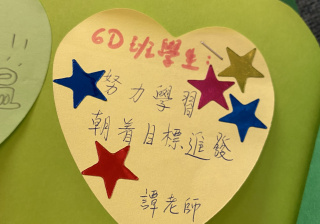 6D班學生：
努力學習
朝着目標進發
譚老師